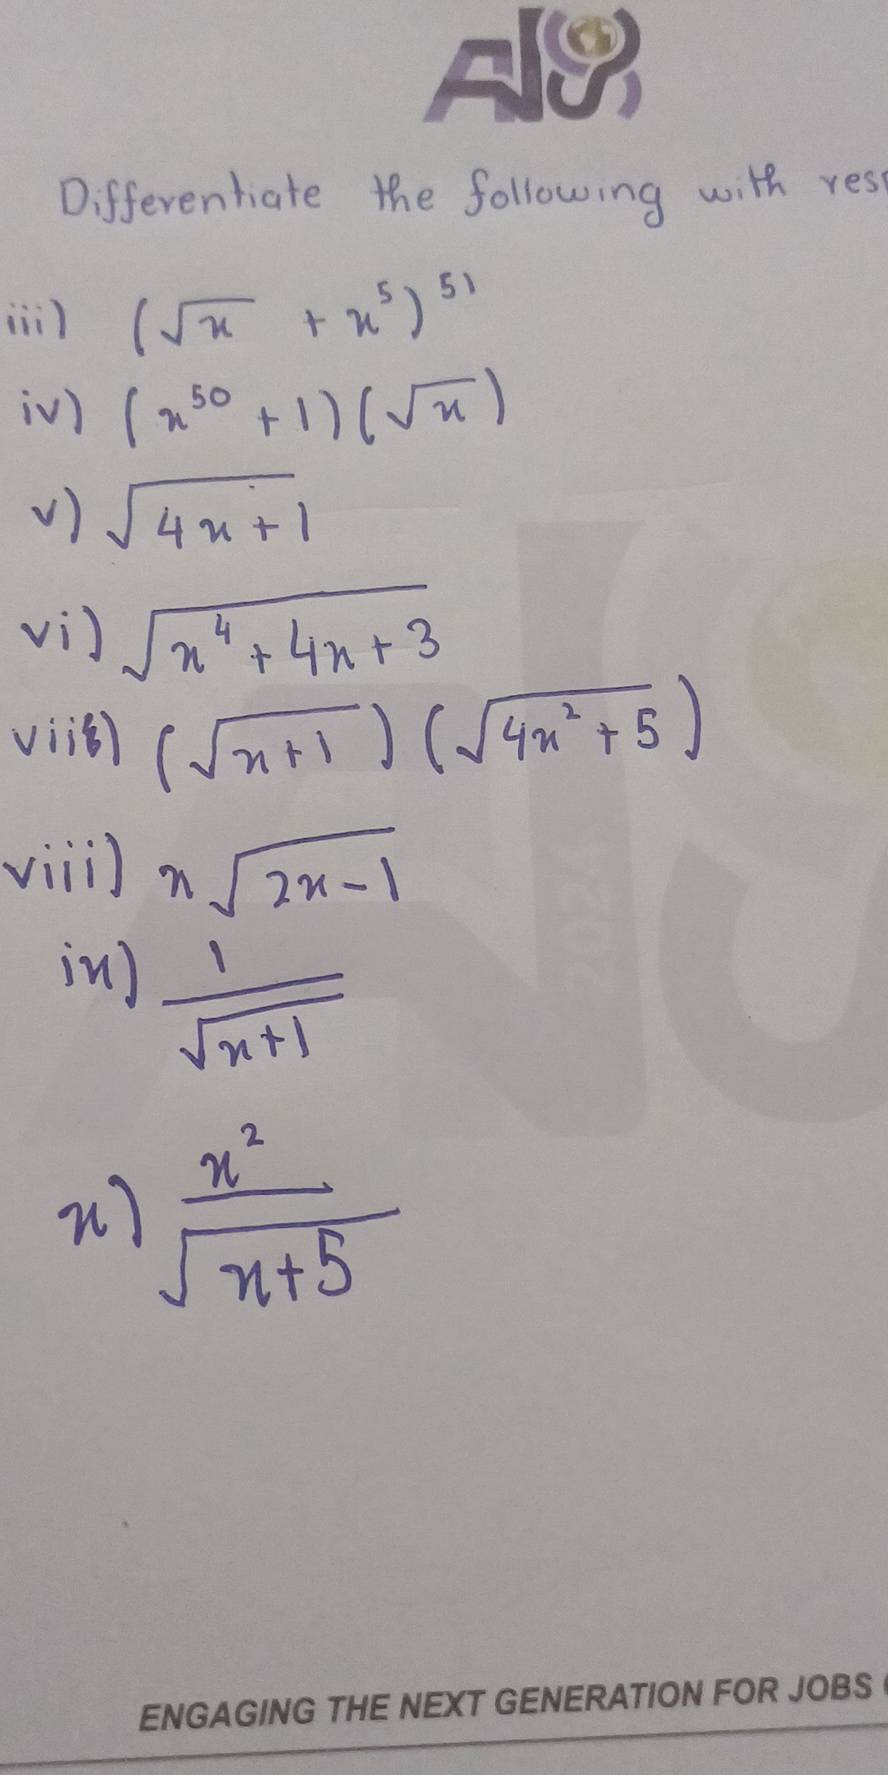 AJS
Differentiate the following with res
iii) (√x + x⁵)⁵¹
iv) (x⁵⁰ + 1)(√x)
v) √4x+1
vi) √x⁴+4x+3
vii) (√x+1) (√4x²+5)
viii) x√2x-1
ix) 1/√x+1
x) x²/√x+5
2024
ENGAGING THE NEXT GENERATION FOR JOBS